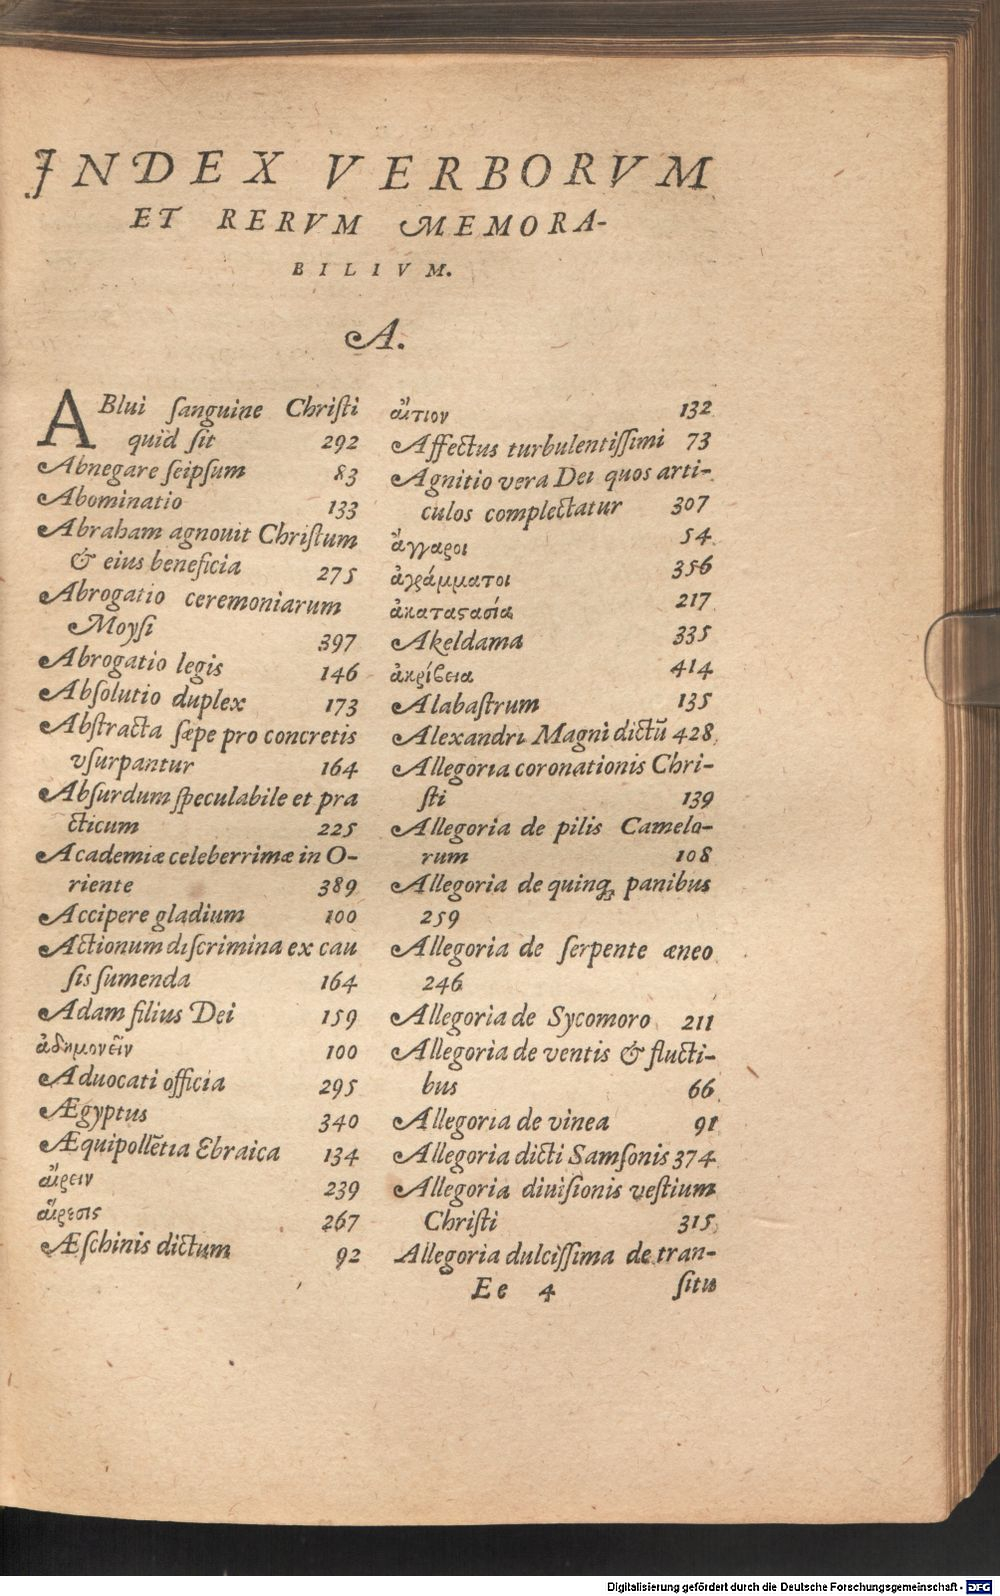 INDEX VERBORVM
ET RERVM MEMORA-
BILIVM.
A.
ABlui ſanguine Chriſti
quid ſit 292
Abnegare ſeipſum 83
Abominatio 133
Abraham agnouit Chriſtum
& eius beneficia 275
Abrogatio ceremoniarum
Moyſi 397
Abrogatio legis 146
Abſolutio duplex 173
Abſtracta ſæpe pro concretis
vſurpantur 164
Abſurdum ſpeculabile et pra
cticum 225
Academiæ celeberrimæ in O-
riente 389
Accipere gladium 100
Actionum diſcrimina ex cau
ſis ſumenda 164
Adam filius Dei 159
ἀδημονεῖν 100
Aduocati officia 295
Ægyptus 340
Æquipollẽtia Ebraica 134
αἴρειν 239
αἵρεσις 267
Æſchinis dictum 92
αἴτιον 132
Affectus turbulentiſſimi 73
Agnitio vera Dei quos arti-
culos complectatur 307
ἄγγαροι 54
ἀγράμματοι 356
ἀκαταϛασία 217
Akeldama 335
ἀκρίβεια 414
Alabaſtrum 135
Alexandri Magni dictũ 428
Allegoria coronationis Chri-
ſti 139
Allegoria de pilis Camelo-
rum 108
Allegoria de quinq; panibus
259
Allegoria de ſerpente æneo
246
Allegoria de Sycomoro 211
Allegoria de ventis & flucti-
bus 66
Allegoria de vinea 91
Allegoria dicti Samſonis 374
Allegoria diuiſionis veſtium
Chriſti 315
Allegoria dulciſſima de tran-
Ee 4 ſitu
Digitalisierung gefördert durch die Deutsche Forschungsgemeinschaft - DFG